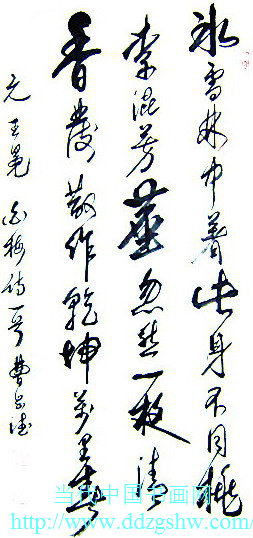 冰雪林中着此身不同桃
李混芳塵忽然一夜清
香發散作乾坤萬里春
元 王冕 白梅诗一首 曹
当代中国书画网
http://www.ddzgshw.com/